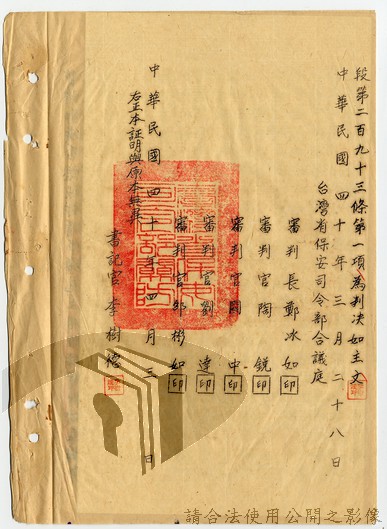 段第二百九十三條第一項為判決如主文
中華民國四十年三月二十八日
台灣省保安司令部合議庭
審判長鄭冰如印
審判官陶銳印
審判官中印
審判官劉達印
審判官彬如印
中華民國四十年四月三日
右正本証明與原本無異
書記官李樹德
請合法使用公開之影像